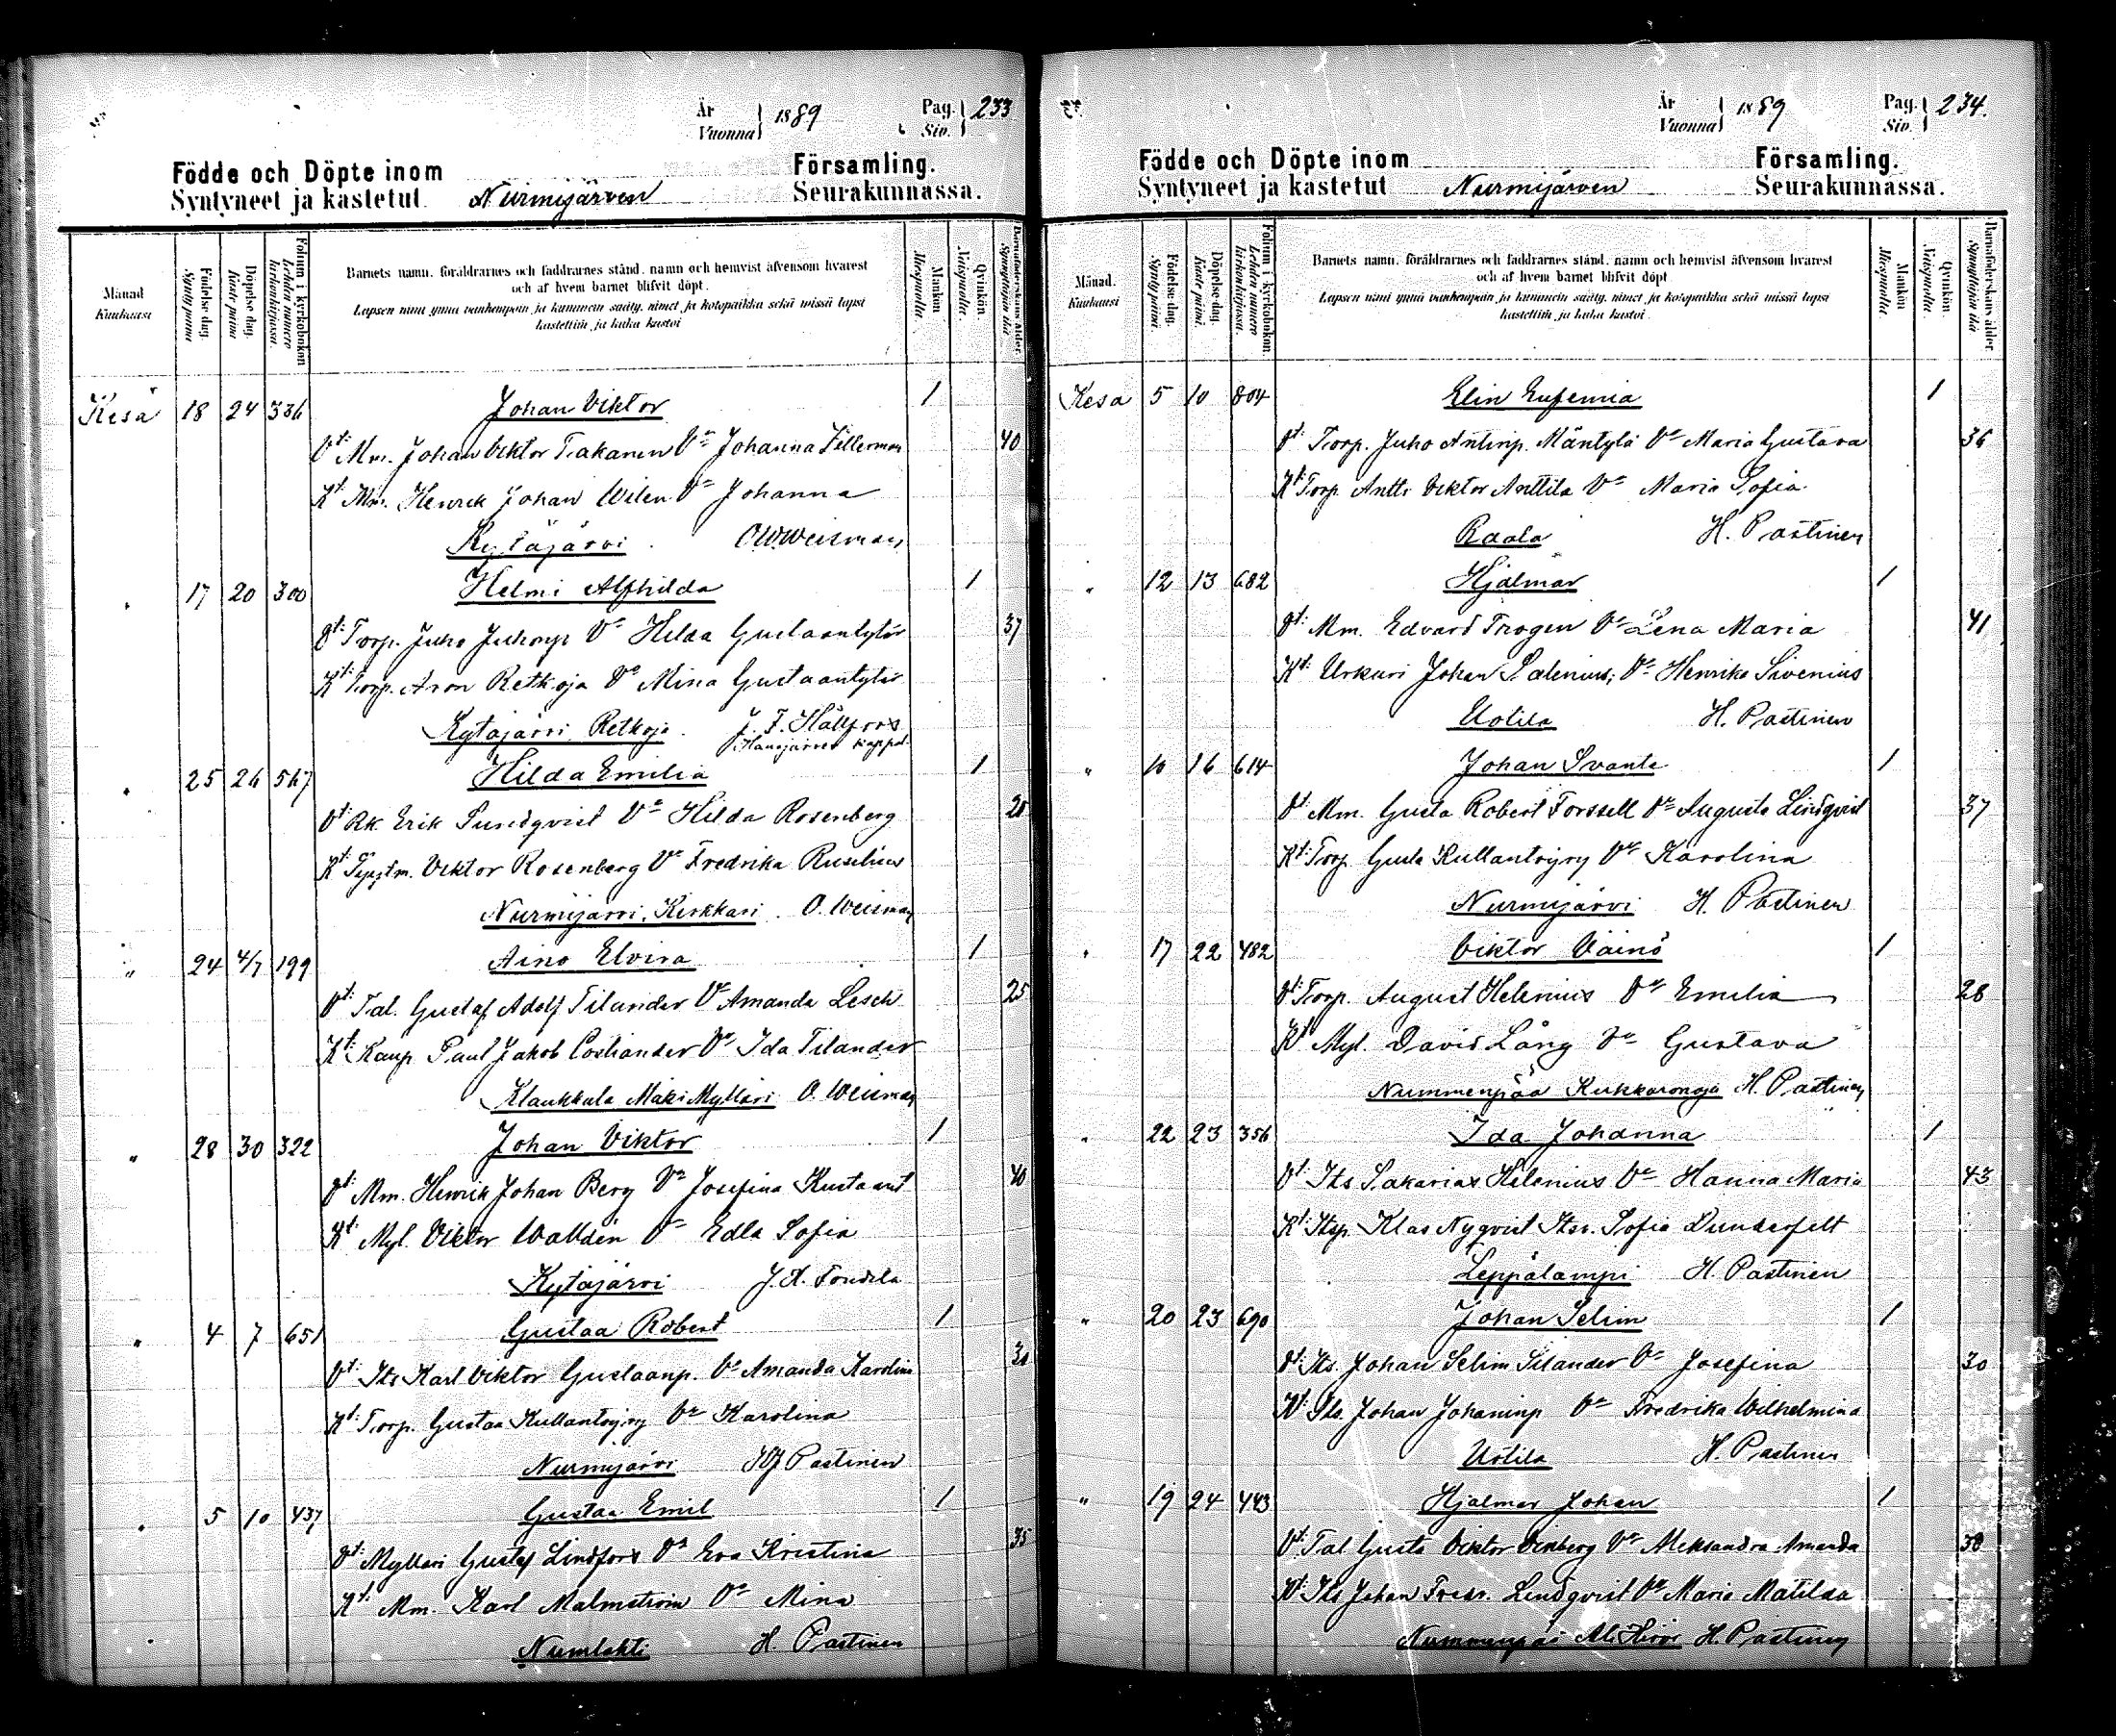 År Vuonna 1889 Pag. Siv. 233
Födde och Döpte inom Församling.
Syntyneet ja kastetut Nurmijärven Seurakunnassa.
Månad Kuukausi
Födelse-dag. Syntypäivä
Döpelse-dag. Kaste-päivä
Folium i kyrkoboken Lehden numero kirkonkirjassa.
Barnets namn, föräldrarnes och faddrarnes stånd, namn och hemvist äfvensom hvarest
och af hvem barnet blifvit döpt.
Lapsen nimi ynnä vanhempain ja kummein sääty, nimet ja kotopaikka sekä missä lapsi
kastettiin ja kuka kastoi
Mankön Miespuolia.
Qvinkön Naispuolia.
Barnaföderskans ålder. Synnyttäjän ikä
Kesä 18 24 336 Johan Viktor 1
Vt: Mm. Johan Viktor Takanen Vo Johanna 40
Kt: Mm. Henrik Johan Wilen Vo Johanna
Kytäjärvi O.W. Weisman
" 17 20 300 Helmi Alfhilda 1
Vt: Torp. Juho Juhonp Vo Hilda Gustaantytär 37
Kt: Torp. Aron Retkoja Vo Mina Gustaantytär
Kytäjärvi Retkoja. J. F. Hällfors
kappal.
" 25 26 567 Hilda Emilia 1
Vt: Rk Erik Sundqvist Vo Hilda Rosenberg 20
Kt: Viktor Rosenberg Vo Fredrika Ruselius
Nurmijärvi, Kirkkari. O. Weisman
" 24 4/7 199 Aino Elvira 1
Vt: Tal. Gustaf Adolf Tilander Vo Amanda Lesch 25
Kt: Kaup. Paul Jakob Costiander Vo Ida Tilander
Klaukkala Mäki Mylläri O. Weisman
" 28 30 322 Johan Viktor 1
Vt: Mm. Henrik Johan Berg Vo Josefina Kustaant 40
Kt: Myl. Viktor Walldén Vo Edla Sofia
Kytäjärvi
" 4 7 651 Gustaa Robert 1
Vt: Its Karl Viktor Gustaanp. Vo Amanda Karolina
Kt: Torp. Gustaa Kullantöyry Vo Karolina
Nurmijärvi H. Pastinen
" 5 10 437 Gustaa Emil 1
Vt: Mylläri Gustaf Lindfors Vo Eva Kristina 35
Kt: Mm. Karl Malmström Vo Mina
Numlahti H. Pastinen
År Vuonna 1889 Pag. Siv. 234.
Födde och Döpte inom Församling.
Syntyneet ja kastetut Nurmijärven Seurakunnassa.
Månad. Kuukausi
Födelse-dag. Syntypäivä.
Döpelse-dag. Kaste-päivä.
Folium i kyrkoboken. Lehden numero kirkonkirjassa.
Barnets namn, föräldrarnes och faddrarnes stånd, namn och hemvist äfvensom hvarest
och af hvem barnet blifvit döpt
Lapsen nimi ynnä vanhempain ja kummein sääty, nimet ja kotopaikka sekä missä lapsi
kastettiin ja kuka kastoi.
Mankön Miespuolia.
Qvinkön. Naispuolia.
Barnaföderskans ålder. Synnyttäjän ikä
Kesä 5 10 804 Elin Eufemia 1
Vt: Torp. Juho Antinp. Mäntylä Vo Maria Gustava 36
Kt: Torp. Antti Viktor Anttila Vo Maria Sofia
Raala H. Pastinen
" 12 13 682 Hjalmar 1
Vt: Mm. Edvard Trogen Vo Lena Maria 41
Kt: Urkuri Johan Salenius, Vo Henrika Sivenius
Uotila H. Pastinen
" 10 16 614 Johan Svante 1
Vt: Mm. Gusta Robert Forssell Vo Augusta Lindqvist 37
Kt: Torp. Gusta Kullantöyry Vo Karolina
Nurmijärvi H. Pastinen
" 17 22 482 Viktor Väinö 1
Vt: Torp. August Helenius Vo Emilia 28
Kt: Myl. David Lång Vo Gustava
Nummenpää Kukkaronoja H. Pastinen
" 22 23 356 Ida Johanna 1
Vt: Its Sakarias Helenius Vo Hanna Maria 43
Kt: Itsp. Klas Nyqvist Itsn. Sofia Dunderfelt
Leppälampi H. Pastinen
" 20 23 690 Johan Selim 1
Vt: Its. Johan Selim Silander Vo Josefina 30
Kt: Its. Johan Johaninp Vo Fredrika Wilhelmina
Uotila H. Pastinen
" 19 24 443 Hjalmar Johan 1
Vt: Tal Gusta Viktor Vinberg Vo Aleksandra Amanda 38
Kt: Its Johan Fredr. Lindqvist Vo Maria Matilda
Nummenpää H. Pastinen